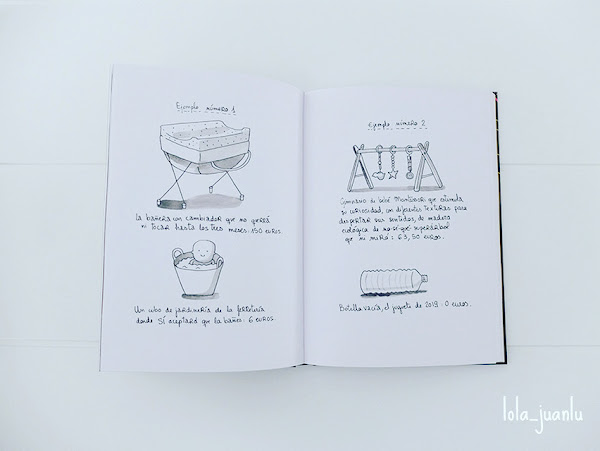 Ejemplo número 1
La bañera con cambiador que no querrá
ni tocar hasta los tres meses: 150 euros.
Un cubo de jardinería de la ferretería
donde SÍ aceptará que la bañes: 6 euros.
Ejemplo número 2
Gimnasio de bebé Montessori que estimula
su curiosidad, con diferentes texturas para
despertar sus sentidos, de madera
ecológica de no-sé-qué superárbol
que ni miró: 63,50 euros.
Botella vacía, el juguete de 2019: 0 euros.
lola_juanlu